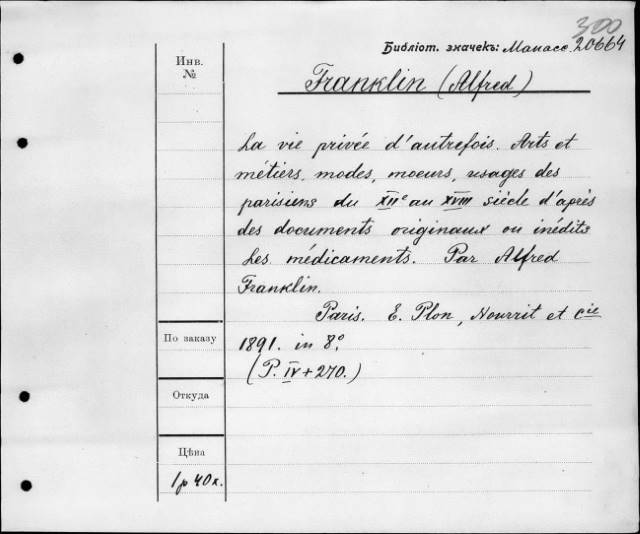 300
Библіот. значекъ: Манасс. 20664
Инв.
№
Franklin (Alfred)
La vie privée d'autrefois. Arts et
métiers, modes, moeurs, usages des
parisiens du XIIe au XVIII siècle d'après
des documents originaux ou inédits
Les médicaments. Par Alfred
Franklin.
Paris. E. Plon, Nourrit et Cie
По заказу
1891. in 8º
(P. IV+270.)
Откуда
Цѣна
1 р 40 к.